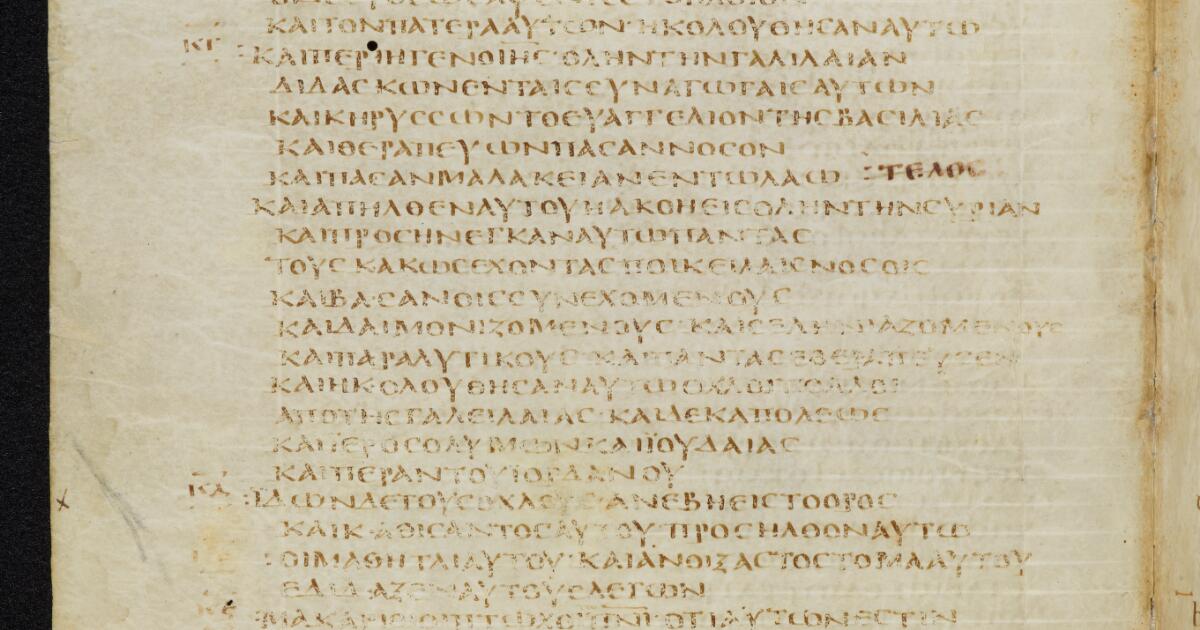 ΚΑΙΤΟΝΠΑΤΕΡΑΑΥΤΩΝ·ΗΚΟΛΟΥΘΗΣΑΝΑΥΤΩ
ΚΓ ΚΑΙΠΕΡΙΗΓΕΝΟΙΗΣ·ΟΛΗΝΤΗΝΓΑΛΙΛΑΙΑΝ
ΔΙΔΑΣΚΩΝΕΝΤΑΙΣΣΥΝΑΓΩΓΑΙΣΑΥΤΩΝ
ΚΑΙΚΗΡΥΣΣΩΝΤΟΕΥΑΓΓΕΛΙΟΝΤΗΣΒΑΣΙΛΙΑΣ
ΚΑΙΘΕΡΑΠΕΥΩΝΠΑΣΑΝΝΟΣΟΝ
ΚΑΙΠΑΣΑΝΜΑΛΑΚΕΙΑΝΕΝΤΩΛΑΩ ΤΕΛΟΣ
ΚΑΙΑΠΗΛΘΕΝΑΥΤΟΥΗΑΚΟΗΕΙΣΟΛΗΝΤΗΝΣΥΡΙΑΝ
ΚΑΙΠΡΟΣΗΝΕΓΚΑΝΑΥΤΩΠΑΝΤΑΣ
ΤΟΥΣΚΑΚΩΣΕΧΟΝΤΑΣΠΟΙΚΕΙΛΑΙΣΝΟΣΟΙΣ
ΚΑΙΒΑΣΑΝΟΙΣΣΥΝΕΧΟΜΕΝΟΥΣ
ΚΑΙΔΑΙΜΟΝΙΖΟΜΕΝΟΥΣ·ΚΑΙΣΕΛΗΝΙΑΖΟΜΕΝΟΥΣ
ΚΑΙΠΑΡΑΛΥΤΙΚΟΥΣ·ΚΑΙΠΑΝΤΑΣΕΘΕΡΑΠΕΥΣΕΝ
ΚΑΙΗΚΟΛΟΥΘΗΣΑΝΑΥΤΩΟΧΛΟΙΠΟΛΛΟΙ
ΑΠΟΤΗΣΓΑΛΕΙΛΑΙΑΣ·ΚΑΙΔΕΚΑΠΟΛΕΩΣ
ΚΑΙΙΕΡΟΣΟΛΥΜΩΝΚΑΙΙΟΥΔΑΙΑΣ
ΚΑΙΠΕΡΑΝΤΟΥΙΟΡΔΑΝΟΥ
ΚΔ ΙΔΩΝΔΕΤΟΥΣΟΧΛΟΥΣ·ΑΝΕΒΗΕΙΣΤΟΟΡΟΣ
ΚΑΙΚΑΘΙΣΑΝΤΟΣΑΥΤΟΥ·ΠΡΟΣΗΛΘΟΝΑΥΤΩ
ΟΙΜΑΘΗΤΑΙΑΥΤΟΥ·ΚΑΙΑΝΟΙΞΑΣΤΟΣΤΟΜΑΑΥΤΟΥ
ΕΔΙΔΑΞΕΝΑΥΤΟΥΣΛΕΓΩΝ
ΚΕ ΜΑΚΑΡΙΟΙΟΙΠΤΩΧΟΙΠΝΙ·ΟΤΙΑΥΤΩΝΕΣΤΙΝ